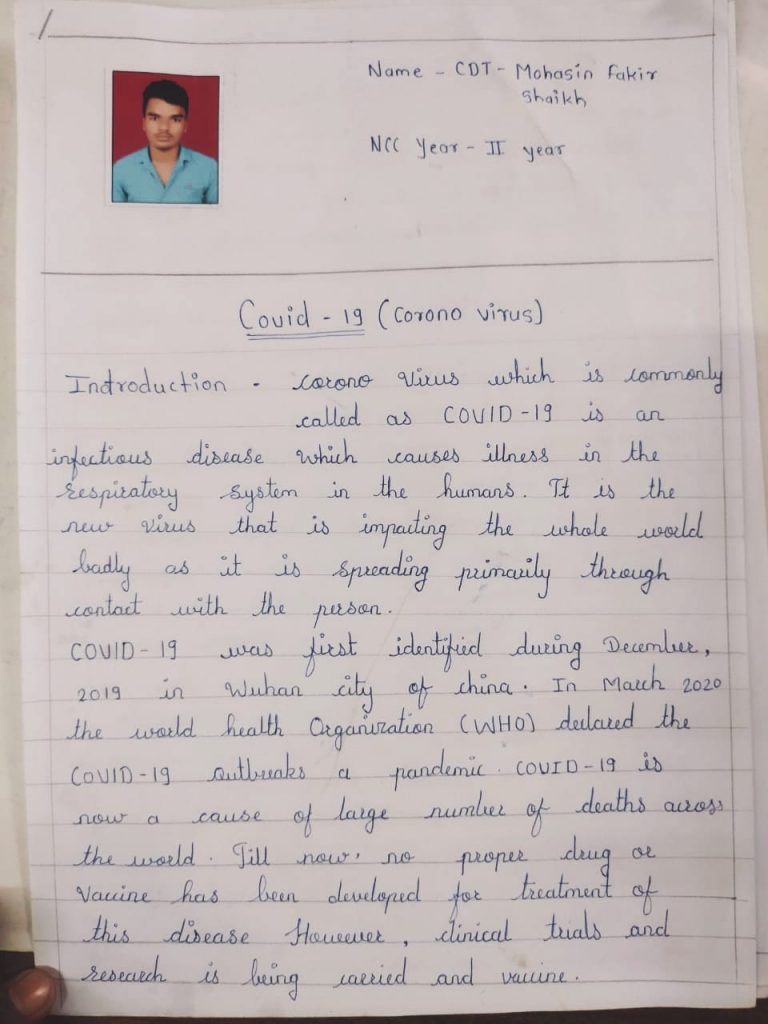 Name - CDT - Mohasin Fakir
Shaikh
NCC Year - II year
Covid - 19 (Corono virus)
Indroduction - corono virus which is commonly
called as COVID-19 is an
infectious disease which causes illness in the
respiratory system in the humans. It is the
new virus that is impacting the whole world
badly as it is spreading primarily through
contact with the person.
COVID-19 was first identified during December,
2019 in Wuhan city of china. In March 2020
the world health Organization (WHO) declared the
COVID-19 outbreaks a pandemic. COVID-19 is
now a cause of large number of deaths across
the world. Till now, no proper drug or
vaccine has been developed for treatment of
this disease However, clinical trials and
research is being carried and vaccine.